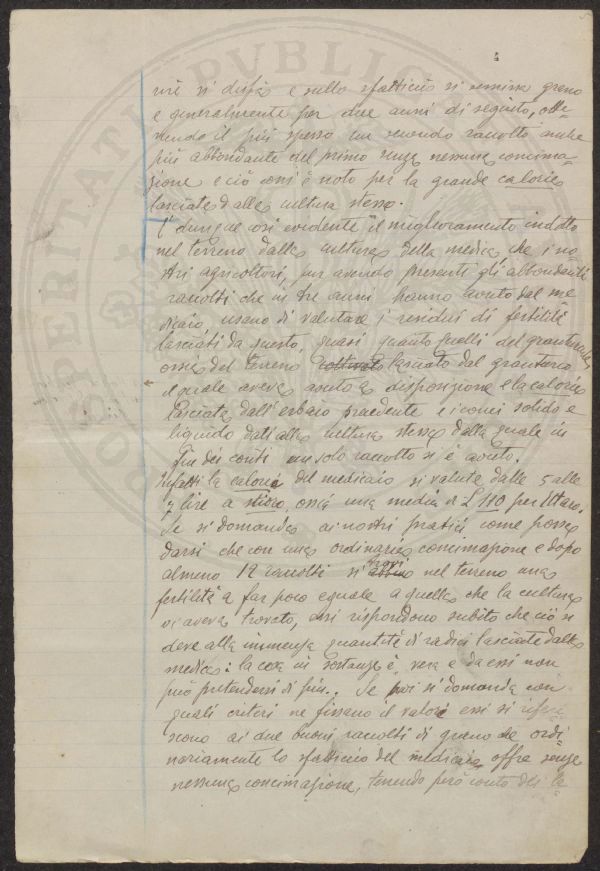 si disfà e sullo sfatticcio si semina grano
e generalmente per due anni di seguito, otte-
nendo il più spesso un secondo raccolto anche
più abbondante del primo senza nessuna concima-
zione e ciò così è noto per la grande caloria
lasciata dalla cultura stessa.
È dunque così evidente il miglioramento indotto
nel terreno dalla cultura della medica che i no-
stri agricoltori, pur avendo presenti gli abbondanti
raccolti che in tre anni hanno avuto dal me
dicaio, usano di valutare i residui di fertilità
lasciati da questo, quasi quanto quelli del granturco
ossia del terreno coltivato lasciato dal granturco
il quale aveva avuto a disposizione e la caloria
lasciata dall'erbaio precedente e i conci solido e
liquido dati alla cultura stessa dalla quale in
fin dei conti un solo raccolto si è avuto.
Infatti la caloria del medicaio si valuta dalle 5 alle
7 lire a stioro, ossia una media di £ 110 per Ettaro.
Se si domanda ai nostri pratici come possa
darsi che con una ordinaria concimazione e dopo
almeno 12 raccolti si trovi nel terreno una
fertilità a far poco eguale a quella che la cultura
vi aveva trovato, essi rispondono subito che ciò si
deve alla immensa quantità di radici lasciate dalla
medica: la cosa in sostanza è vera e da essi non
può pretendersi di più. Se poi si domanda con
quali criteri ne fissano il valore essi si riferi-
scono ai due buoni raccolti di grano che ordi-
nariamente lo sfatticcio del medicaio offre senza
nessuna concimazione, tenendo però conto del la